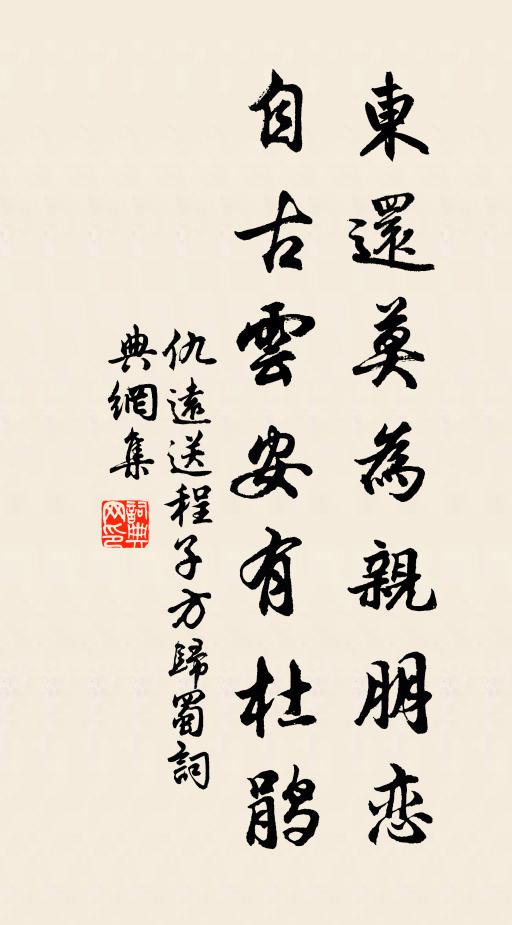 東還莫為親朋恋
自古雲安有杜鹃
仇遠送程子方歸蜀詞
典網集
詞典網印